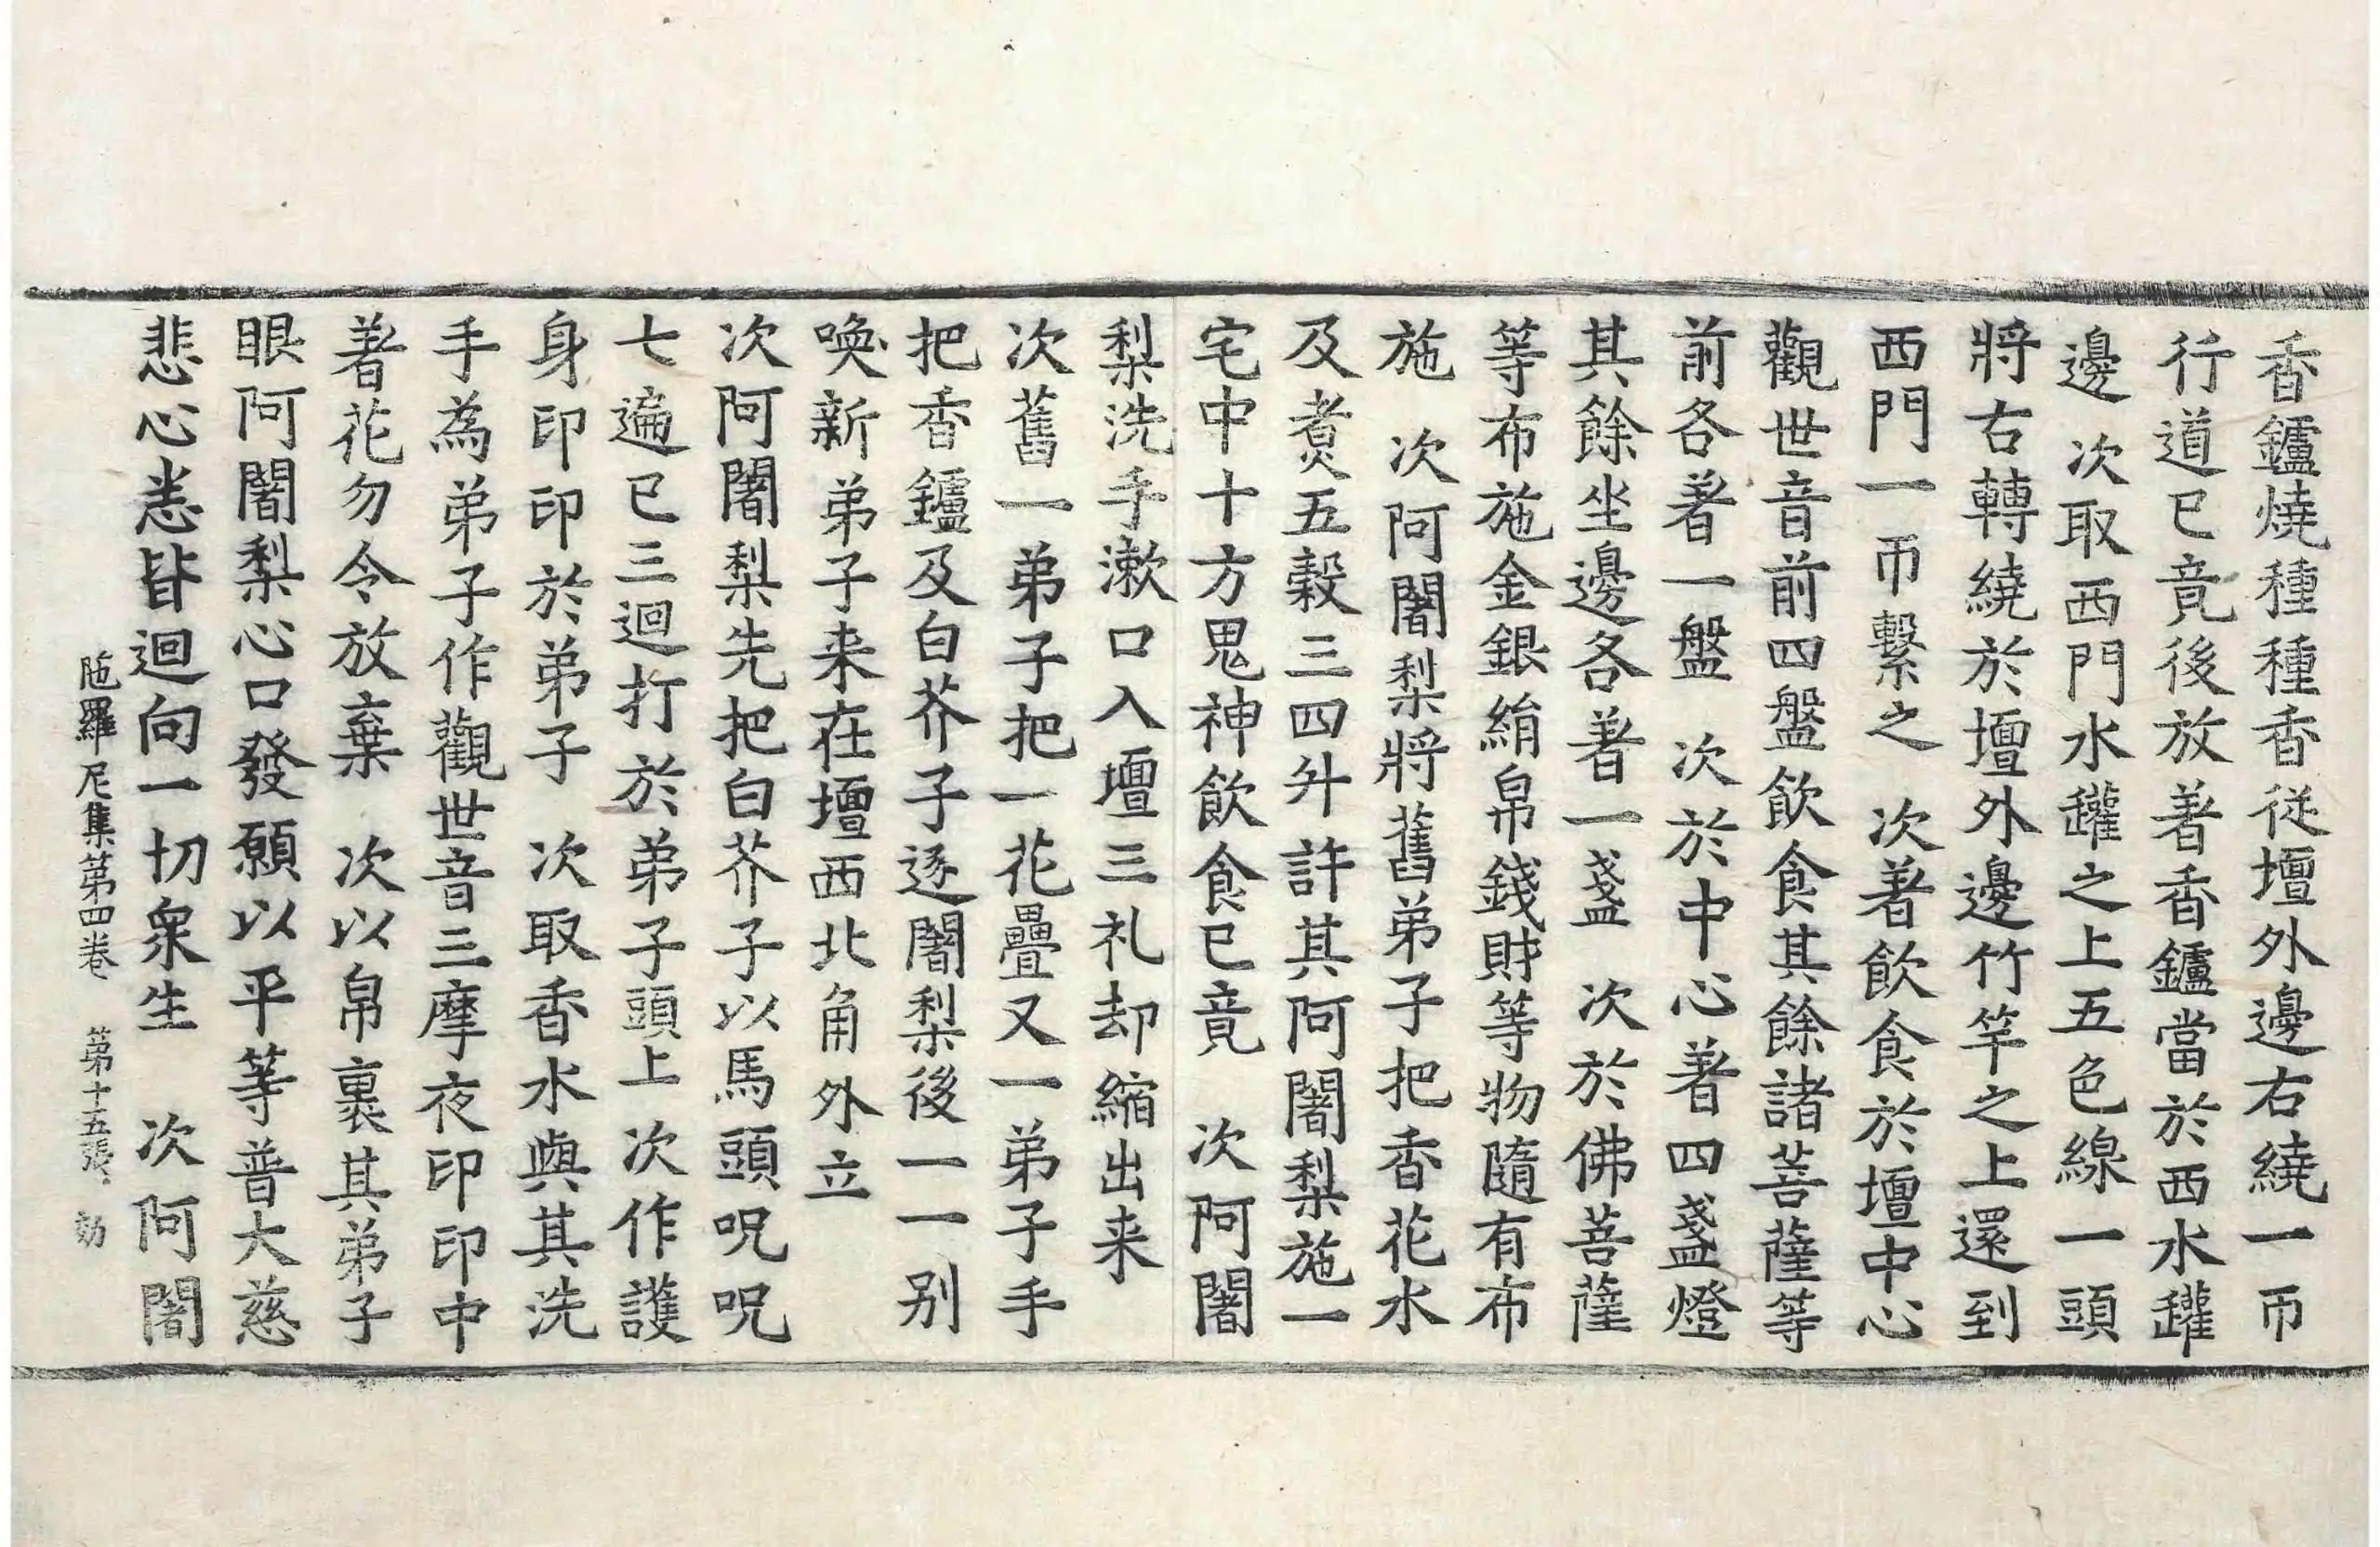 香鑪燒種種香從壇外邊右繞一帀
行道已竟後放著香鑪當於西水罐
邊　次取西門水罐之上五色線一頭
將右轉繞於壇外邊竹竿之上還到
西門一帀繫之　次著飲食於壇中心
觀世音前四盤飲食其餘諸菩薩等
前各著一盤　次於中心著四盞燈
其餘坐邊各著一盞　次於佛菩薩
等布施金銀絹帛錢財等物隨有布
施　次阿闍梨將舊弟子把香花水
及煮五穀三四升許其阿闍梨施一
宅中十方鬼神飲食已竟　次阿闍
梨洗手漱口入壇三礼却縮出来
次舊一弟子把一花疊又一弟子手
把香鑪及白芥子逐闍梨後一一別
喚新弟子来在壇西北角外立
次阿闍梨先把白芥子以馬頭呪呪
七遍已三迴打於弟子頭上次作護
身印印於弟子　次取香水與其洗
手為弟子作觀世音三摩夜印印中
著花勿令放棄　次以帛裹其弟子
眼阿闍梨心口發願以平等普大慈
悲心恙皆迴向一切衆生　次阿闍
陁羅尼集第四卷　第十五張　㓛